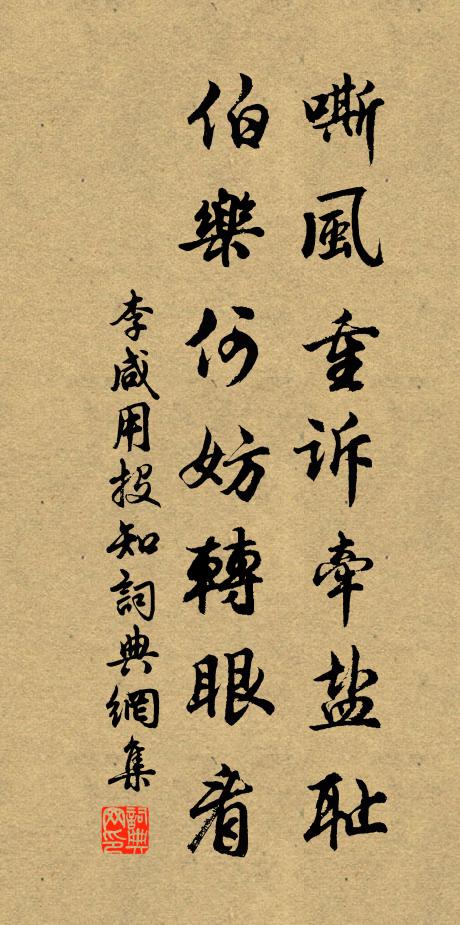 嘶風重诉牽盐耻
伯樂何妨轉眼看
李咸用投知詞典網集
詞典网印